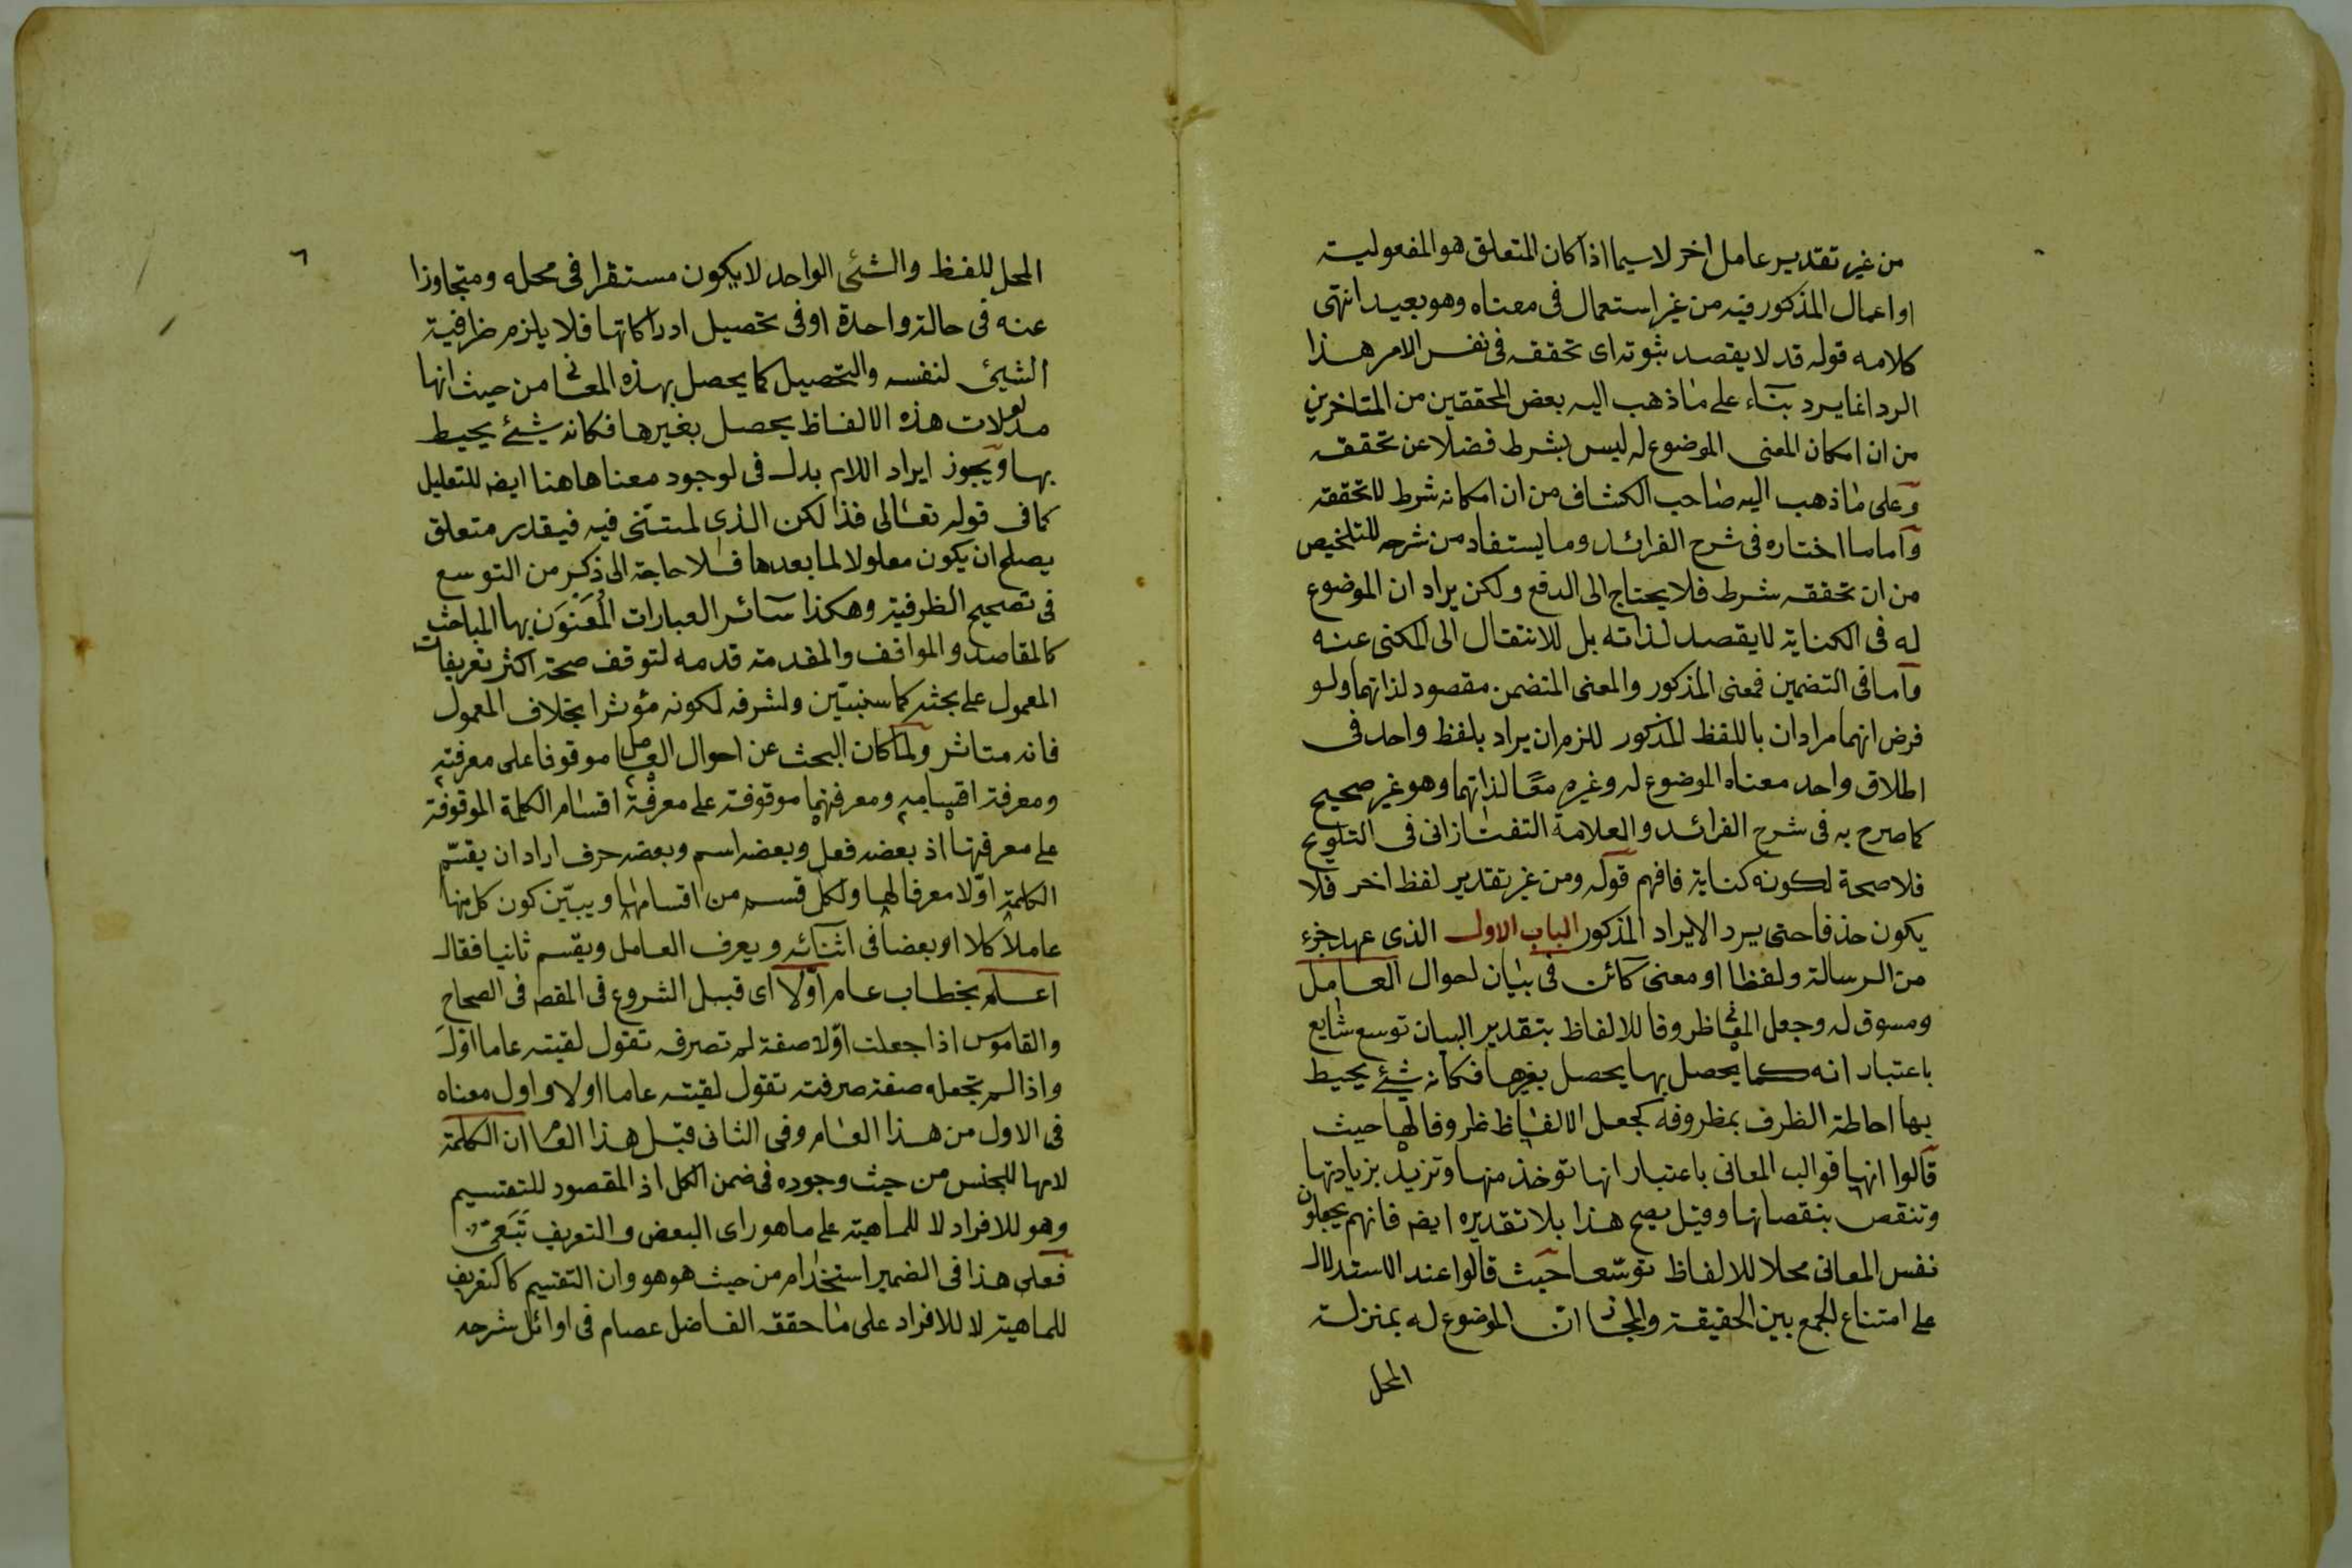 من غير تقدير عامل اخر لاسيما اذا كان المتعلق هو المفعولية
او اعمال المذكور فيه من غير استعمال فى معناه وهو بعيد انتهى
كلامه قوله قد لا يقصد ثبوته اى تحققه فى نفس الامر هذا
الرد انما يرد بناء على ما ذهب اليه بعض المحققين من المتاخرين
من ان امكان المعنى الموضوع له ليس بشرط فضلا عن تحققه
وعلى ما ذهب اليه صاحب الكشاف من ان امكانه شرط لا تحققه
واما ما اختاره فى شرح الفرائد وما يستفاد من شرحه للتلخيص
من ان تحققه شرط فلا يحتاج الى الدفع ولكن يراد ان الموضوع
له فى الكناية لا يقصد لذاته بل للانتقال الى المكنى عنه
واما فى التضمين فمعنى المذكور والمعنى المتضمن مقصود لذاتهما ولو
فرض انهما مرادان باللفظ المذكور للزم ان يراد بلفظ واحد فى
اطلاق واحد معناه الموضوع له وغيره معًا لذاتهما وهو غير صحيح
كما صرح به فى شرح الفرائد والعلامة التفتازانى فى التلويح
فلا صحة لكونه كناية فافهم قوله ومن غير تقدير لفظ اخر فلا
يكون حذفا حتى يرد الايراد المذكور الباب الاول الذى عهد جزء
من الرسالة ولفظا او معنى كائن فى بيان احوال العامل
ومسوق له وجعل المعانى ظروفا للالفاظ بتقدير البيان توسع شايع
باعتبار انه كما يحصل بها يحصل بغيرها فكانه شئ يحيط
بها احاطة الظرف بمظروفه كجعل الالفاظ ظروفا لها حيث
قالوا انها قوالب المعانى باعتبار انها توخذ منها وتزيد بزيادتها
وتنقص بنقصانها وقيل يصح هذا بلا تقديره ايضا فانهم يجعلون
نفس المعانى محلا للالفاظ توسّعا حيث قالوا عند الاستدلال
على امتناع الجمع بين الحقيقة والمجاز ان الموضوع له بمنزلة
المحل
٦
المحل للفظ والشئ الواحد لا يكون مستقرا فى محله ومتجاوزا
عنه فى حالة واحدة او فى تحصيل ادراكاتها فلا يلزم ظرفية
الشيئ لنفسه والتحصيل كما يحصل بهذه المعانى من حيث انها
مدلولات هذه الالفاظ يحصل بغيرها فكانه شئ يحيط
بها ويجوز ايراد اللام بدل فى لوجود معناها هنا ايضا للتعليل
كما فى قوله تعالى فذالكن الذى لمتنّنى فيه فيقدر متعلق
يصلح ان يكون معلولا لما بعدها فلا حاجة الى ذكر من التوسع
فى تصحيح الظرفية وهكذا سائر العبارات المُعَنوَن بها المباحث
كالمقاصد والمواقف والمقدمة قدمه لتوقف صحة اكثر تعريفات
المعمول على بحثه كما سنبيّن ولشرفه لكونه مؤثرا بخلاف المعمول
فانه متاثر ولما كان البحث عن احوال العامل موقوفا على معرفته
ومعرفة اقسامه ومعرفتهما موقوفة على معرفة اقسام الكلمة الموقوفة
على معرفتها اذ بعضه فعل وبعضه اسم وبعضه حرف اراد ان يقسّم
الكلمة اوّلا معرفا لها ولكل قسم من اقسامها ويبيّن كون كل منها
عاملا كلا او بعضا فى اثنائه ويعرف العامل ويقسم ثانيا فقال
اعلم بخطاب عام اوّلا اى قبل الشروع فى المقص فى الصحاح
والقاموس اذا جعلت اوّلا صفة لم تصرفه تقول لقيته عاما اوّلَ
واذا لم تجعله صفة صرفته تقول لقيته عاما اولا واول معناه
فى الاول من هذا العام وفى الثانى قبل هذا العام ان الكلمة
لامها للجنس من حيث وجوده فى ضمن الكل اذ المقصود للتقسيم
وهو للافراد لا للماهية على ما هو راى البعض والتعريف تَبَعى
فعلى هذا فى الضمير استخدام من حيث هو هو وان التقسيم كالتعريف
للماهية لا للافراد على ما حققه الفاضل عصام فى اوائل شرحه